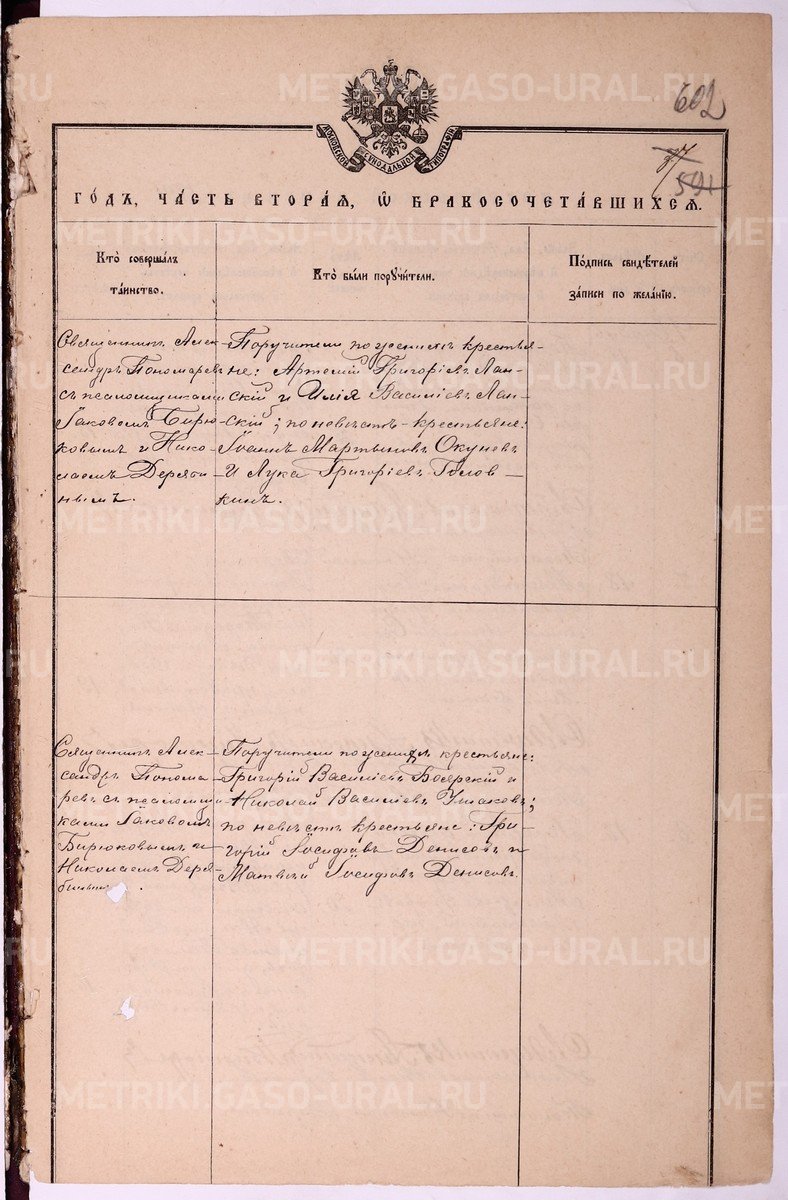 602
591
МОСКОВСКОЙ СѴНОДАЛЬНОЙ ТИПОГРАФІИ
ГО́ДЪ, ЧА́СТЬ ВТОРА́Я, Ѿ БРАКОСОЧЕТА́ВШИХСЯ.
Кто̀ соверша́лъ
та́инство.
Кто̀ бы́ли порꙋчи́тели.
По́дпись свидѣ́телей
за́писи по жела́нїю.
Священникъ Алек-
сандръ Пономаревъ
съ псаломщиками
Іаковомъ Бирю-
ковымъ и Нико-
лаемъ Деряби-
нымъ.
Поручители по женихѣ крестья-
не: Артемій Григоріевъ Лан-
скій и Илія Василіевъ Лан-
скій; по невѣстѣ - крестьяне:
Іоаннъ Мартыновъ Окуневъ
и Лука Григоріевъ Голов-
кинъ.
Священникъ Алек-
сандръ Понома-
ревъ съ псаломщи-
ками Іаковомъ
Бирюковымъ и
Николаемъ Деря-
бинымъ.
Поручители по женихѣ крестьяне:
Григорій Василіевъ Боярскій и
Николай Василіевъ Ушаковъ;
по невѣстѣ крестьяне: Гри-
горій Іосифовъ Денисовъ и
Матвѣй Іосифовъ Денисовъ.
METRIKI.GASO-URAL.RU